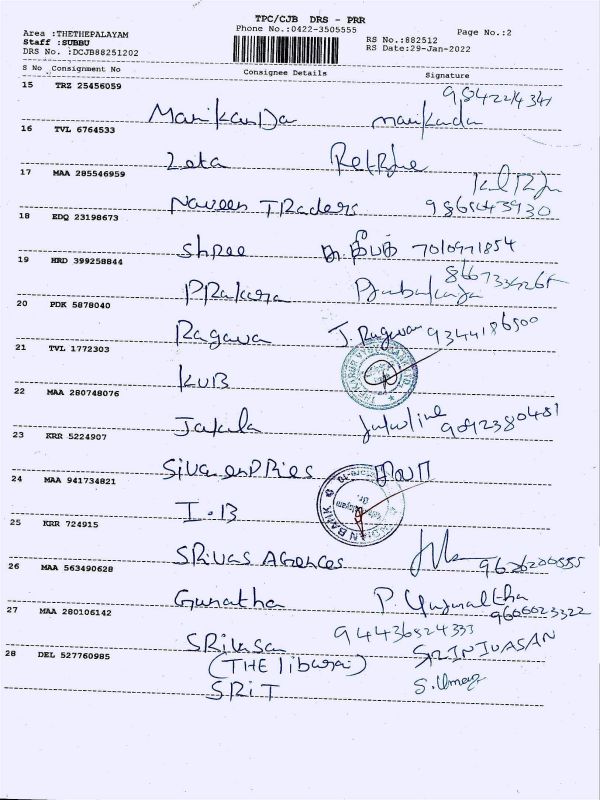 TPC/CJB DRS - PRR
Area :THETHEPALAYAM Phone No.:0422-3505555 Page No.:2
Staff :SUBBU RS No.:882512
DRS No. :DCJB88251202 RS Date:29-Jan-2022
S No Consignment No Consignee Details Signature
15 TRZ 25456059
ManikanDa manikanda
16 TVL 6764533
Zeta
17 MAA 285546959
Naveen TRaders 9865043930
18 EDQ 23198673
Shree தீபக் 7010971854
19 HRD 399258844
PRakasa
20 PDK 5878040
Ragava J. Ragavan 9344186500
21 TVL 1772303
KUB
22 MAA 280748076
Jakula
23 KRR 5224907
Siva enPRies சிவா
24 MAA 941734821
I.B
INDIAN BANK
25 KRR 724915
SRivas Agences 9626200555
26 MAA 563490628
Gunatha 9666623322
27 MAA 280106142
SRivasa 94436524333 SRINIVASAN
(THE libarai)
28 DEL 527760985
SRiT S. Umag